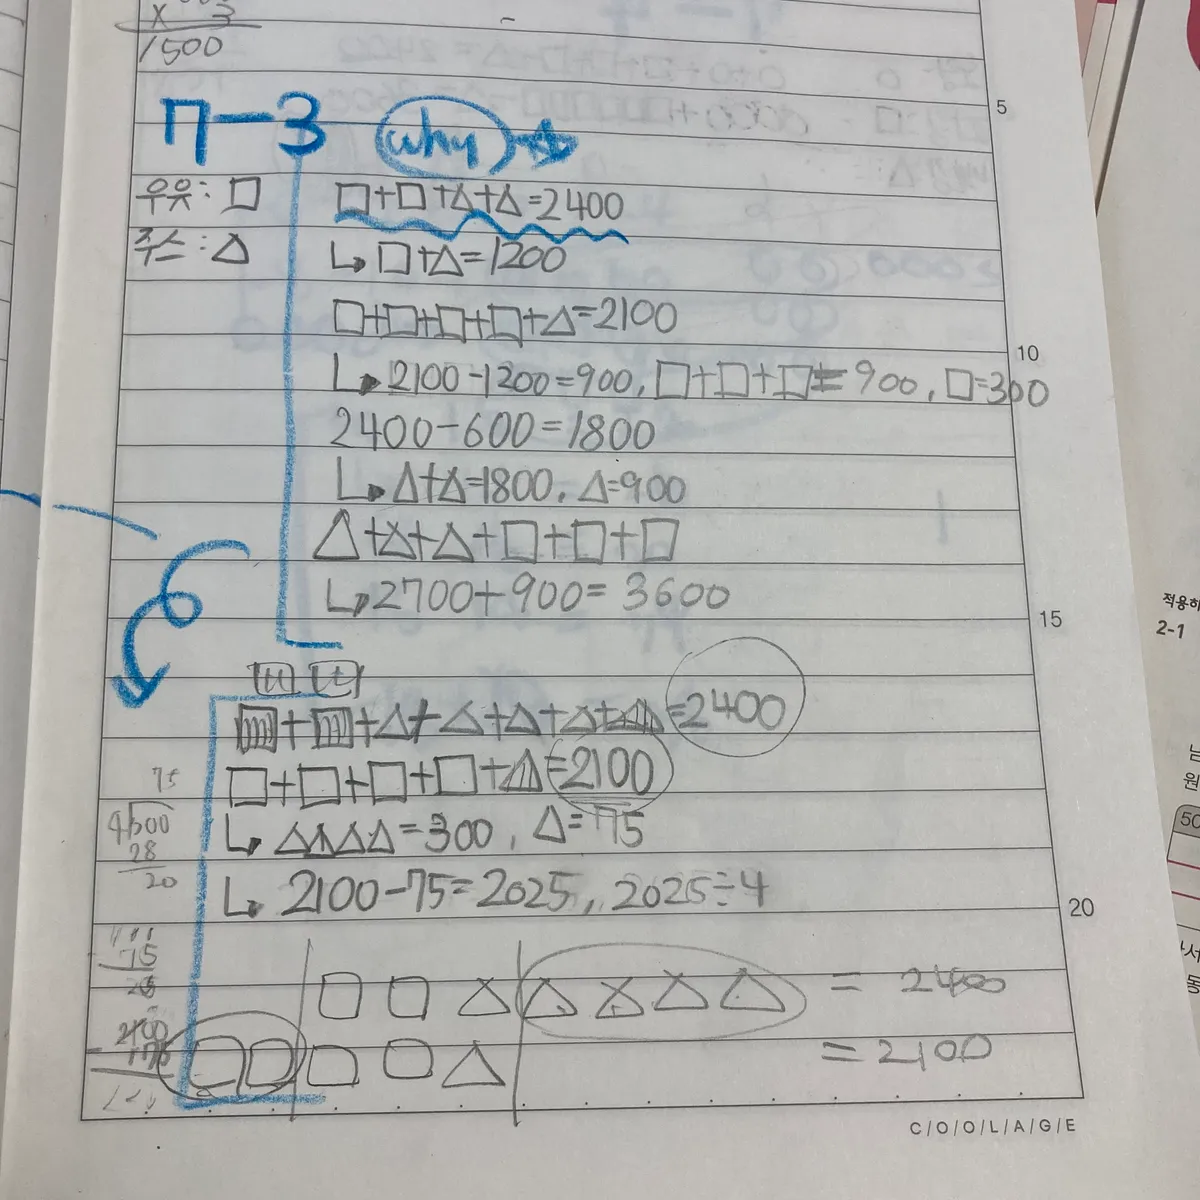 × 3
1500
5
П-3 why
우유: □ □+□+△+△=2400
주스: △ ↳ □+△=1200
□+□+□+□+△=2100
10
↳ 2100-1200=900, □+□+□=900, □=300
2400-600=1800
↳ △+△=1800, △=900
△+△+△+□+□+□
↳ 2700+900=3600
15
적용하
2-1
□+□+△+△+△+△+△=2400
□+□+□+□+△=2100
75
↳ △△△△=300, △=75
28
20
↳ 2100-75=2025, 2025÷4
50
20
75
□ □ △ △ △ △ △ = 2400
□ □ □ □ △ = 2100
C/O/O/L/A/G/E